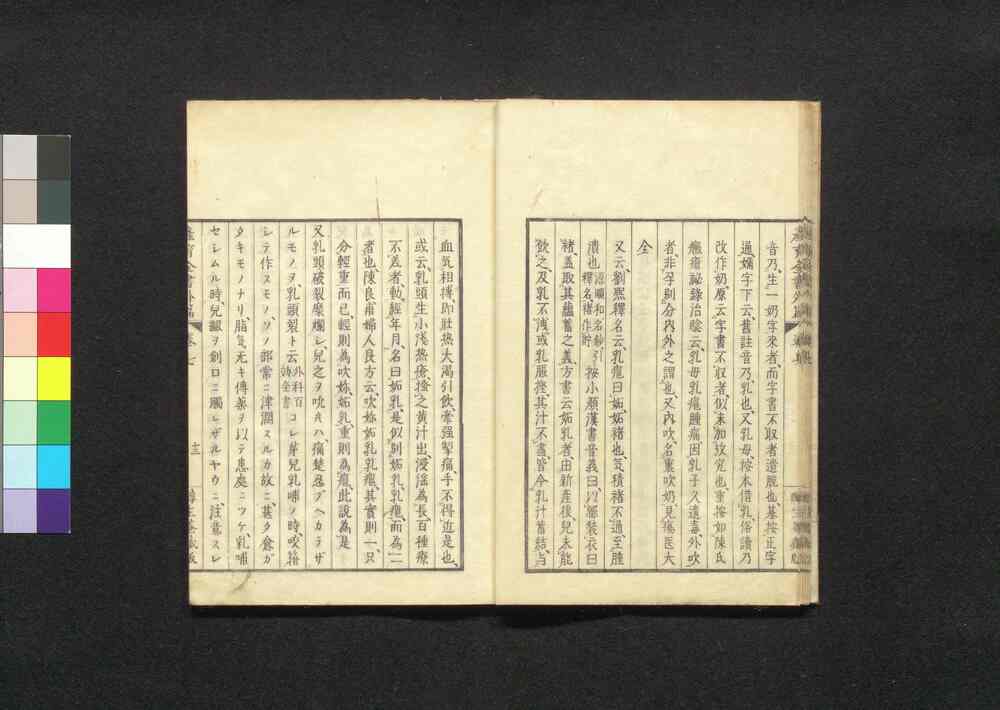 音乃、生一奶字來者、而字書不取者遺脱也、基按正字
通、嬭字下云、舊註音乃、乳也、又乳母、按本借乳、俗讀乃
改作奶、廖云字書不収者、似未加攷究也、重按如陳氏
癰瘡祕錄治驗云、乳母乳癰腫痛、因乳子久遺毒、外吹
者、非孕則分內外之謂也、又內吹名重吹奶、見瘍医大
全
又云、劉熙釋名云、乳癰曰妬、妬褚也、気積褚不通、至腫
潰也 按小顏漢書音義曰、以綿裝衣曰
褚、蓋取其蘊蓄之義、方書云妬乳者、由新産後、兒未能
飲之、及乳不洩、或乳脹、捏其汁不盡、皆令乳汁蓄結、与
血気相搏、即壯热大渴引飲、牽强掣痛、手不得近是也、
或云、乳頭生小淺热瘡、搔之黄汁出、浸淫為長、百種療
不差者、動經年月、名曰妬乳、是似別妬乳、乳癰而為二
者也、陳良甫婦人良方云、吹妳妬乳乳癰、其實則一、只
分輕重而已、輕則為吹妳、妬乳、重則為癰、此説為是
又乳頭破裂糜爛シ、兒之ヲ吮ヘハ、痛楚忍ブヘカラザ
ルモノヲ、乳頭裂ト云 外科百効全書 コレ芽兒乳哺ノ時、咬辦
シテ作スモノ、ソノ部常ニ津潤スルカ故ニ、甚タ愈ガ
タキモノナリ、脂気无キ傅薬ヲ以テ患處ニツケ、乳哺
セシムル時、兒齦ヲ創口ニ觸レザルヤウニ、注意スレ
卷七
十三